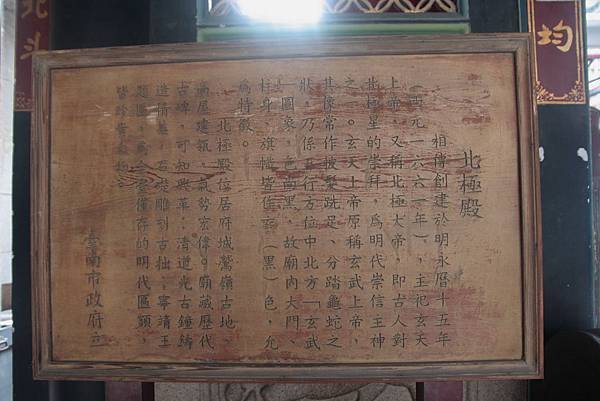 北極殿
相傳創建於明永曆十五年
(西元一六六一年),主祀玄天
上帝,又稱北極大帝,即古人對
北極星的崇拜,為明代崇信主神
之一。玄天上帝原稱玄武上帝,
其像常作披髮跣足、分踏龜蛇之
狀,乃係五行方位中北方「玄武
」圖象,色尚黑,故廟內大門、
柱身、旗幟皆作玄(黑)色,允
為特徵。
北極殿位居府城鷲嶺古地
廟屋建築,氣勢宏偉。廟藏歷代
古碑,可知興革,清道光古鐘鑄
造精美,石碑雕刻古拙;寧靖王
題匾,為全臺僅存的明代匾額,
皆珍貴文物。
臺南市政府立
北斗
均